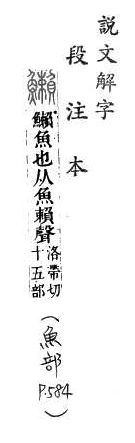 說文解字
段注本
鱳魚也从魚賴聲洛帶切
十五部
(魚部
P.584)